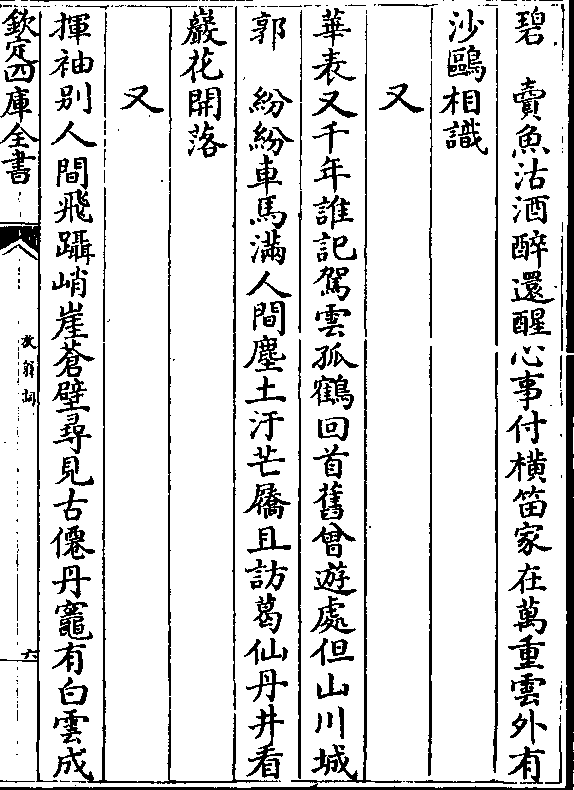 碧　賣魚沽酒醉還醒心事付橫笛家在萬重雲外有
沙鷗相識
又
華表又千年誰記駕雲孤鶴回首舊曾遊處但山川城
郭　紛紛車馬滿人間塵土汙芒屩且訪葛仙丹井看
巖花開落
又
揮袖別人間飛躡峭崖蒼壁尋見古僊丹竈有白雲成
欽定四庫全書
放翁詞
六